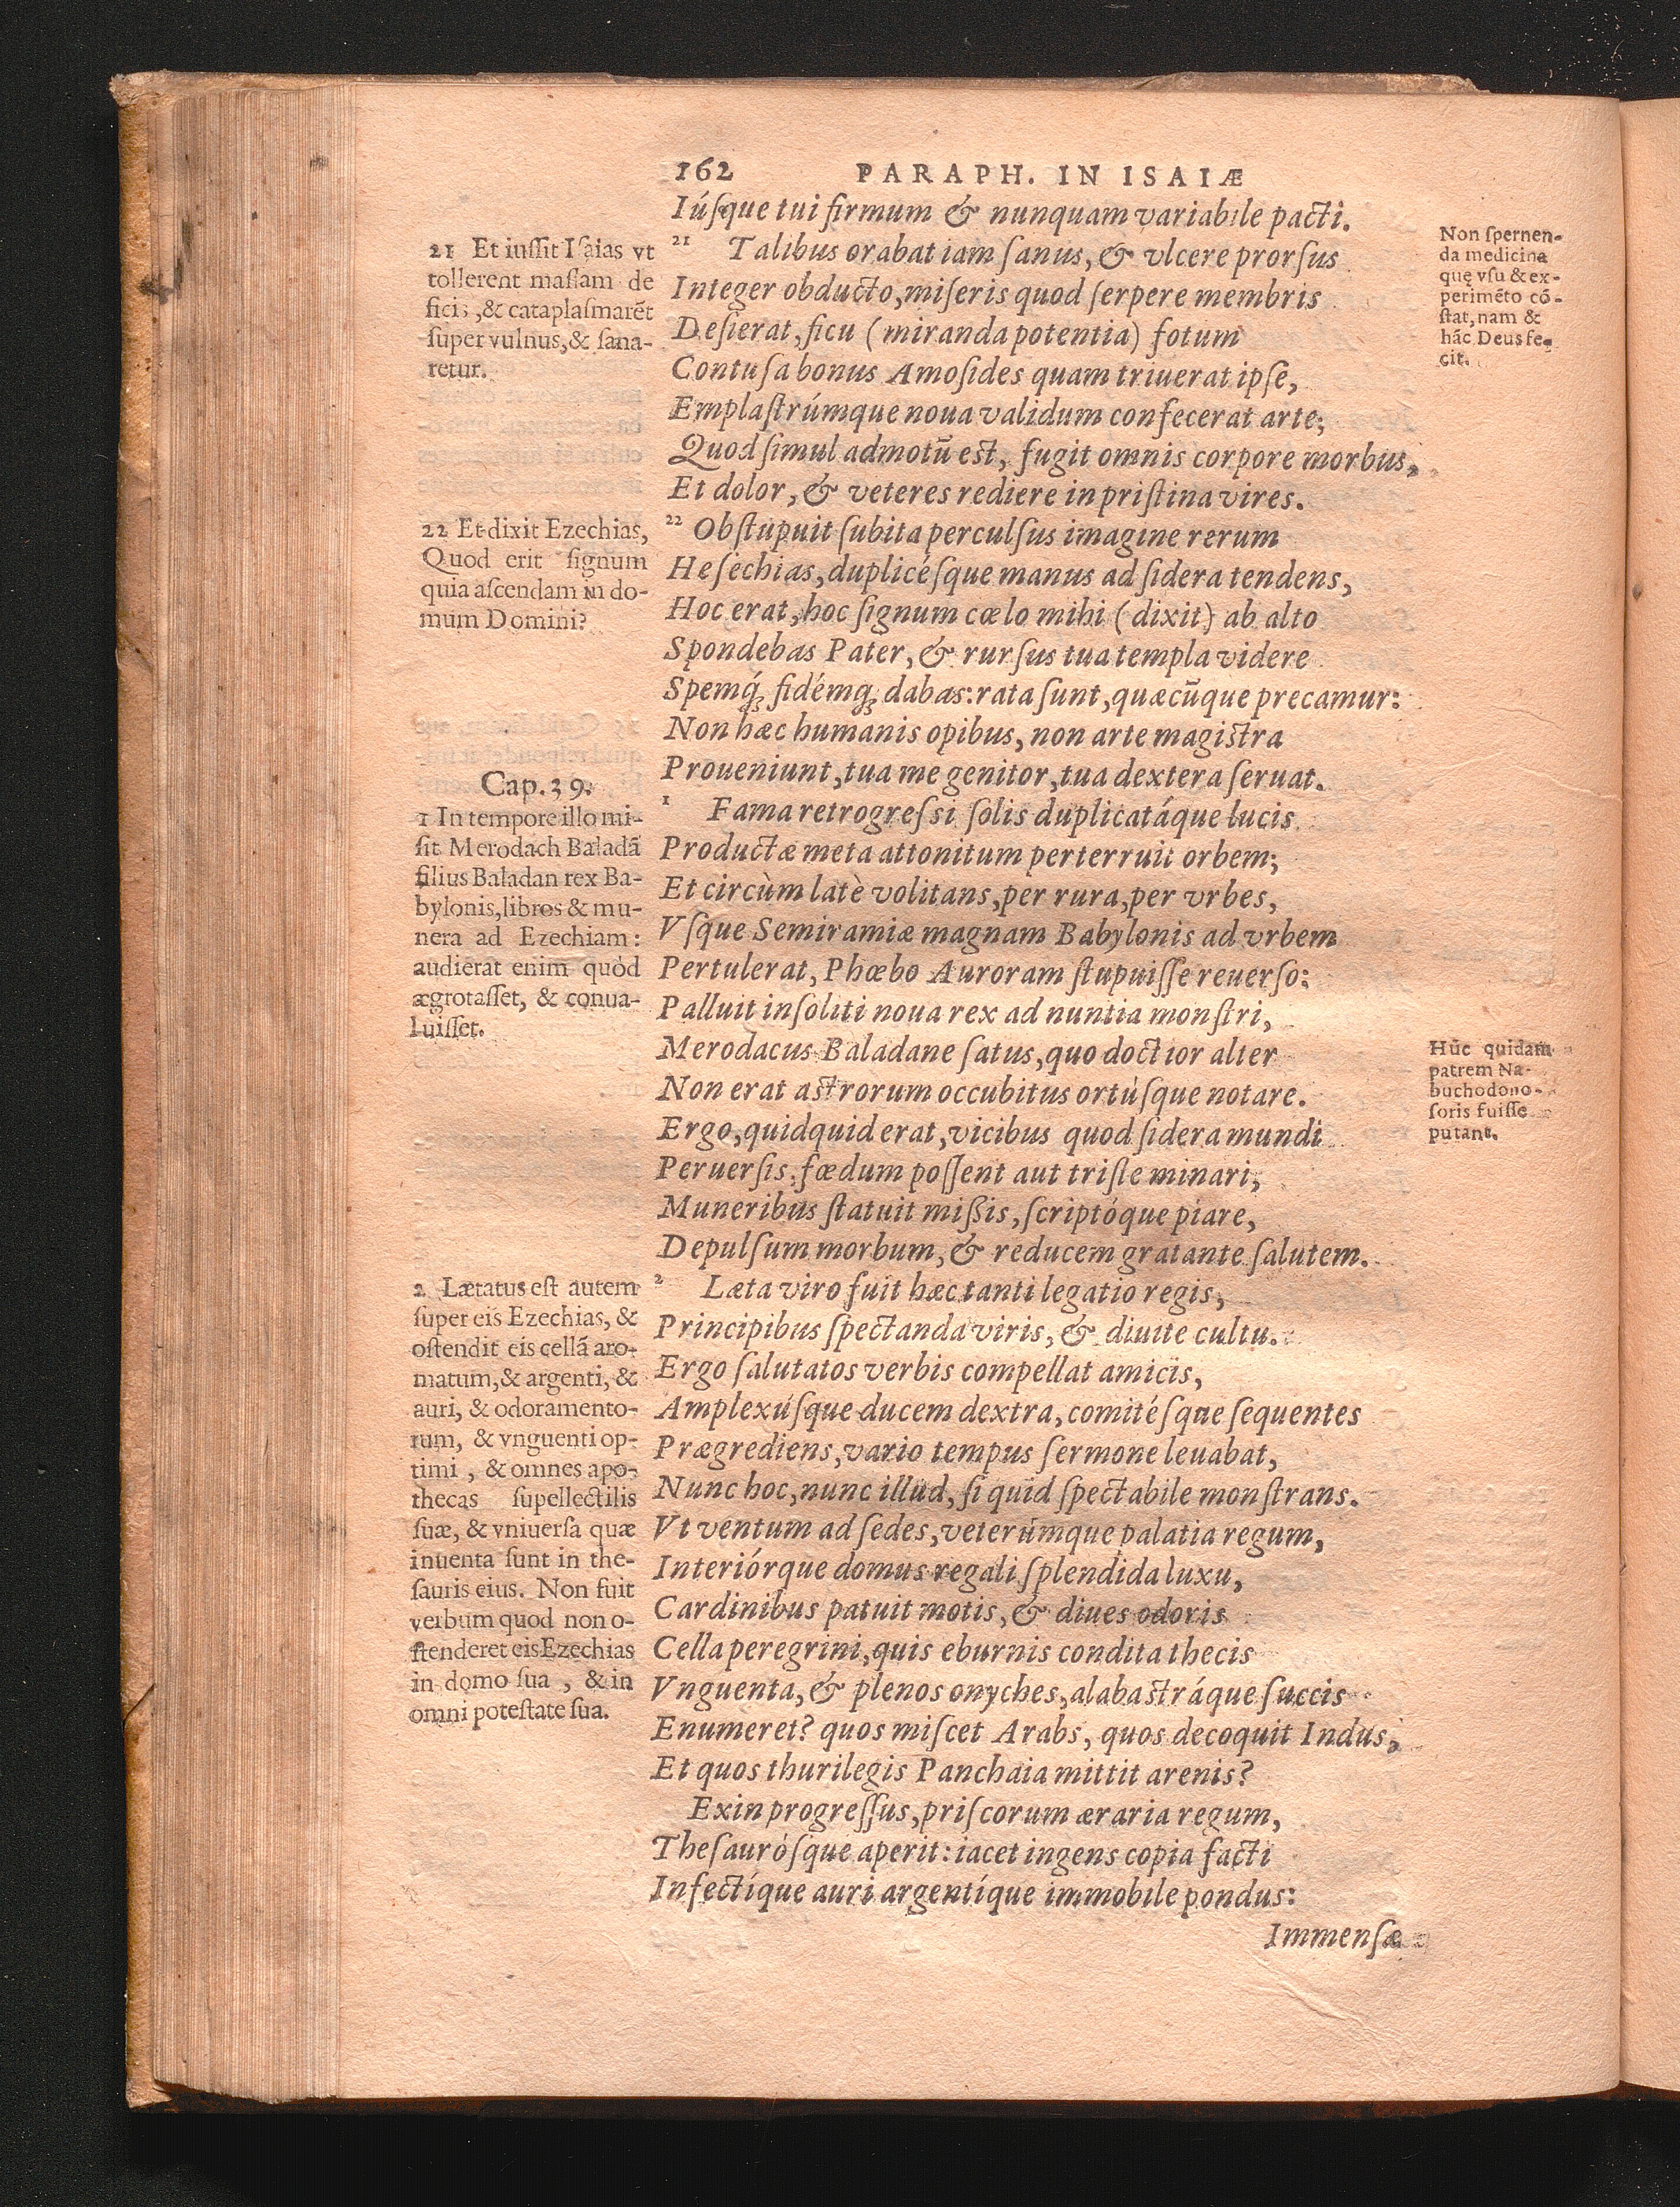 162 PARAPH. IN ISAIÆ
Iúſque tui firmum & nunquam variabile pacti.
21 Talibus orabat iam ſanus, & vlcere prorſus
Integer obducto, miſeris quod ſerpere membris
Deſierat, ficu (miranda potentia) fotum
Contuſa bonus Amoſides quam triuerat ipſe,
Emplaſtrúmque noua validum confecerat arte;
Quod ſimul admotū est, fugit omnis corpore morbus,
Et dolor, & veteres rediere in priſtina vires.
22 Obſtupuit ſubita perculſus imagine rerum
Heſechias, duplicéſque manus ad ſidera tendens,
Hoc erat, hoc ſignum cœlo mihi (dixit) ab alto
Spondebas Pater, & rurſus tua templa videre
Spemq́ꝫ fidémqꝫ dabas: rata ſunt, quæcūque precamur:
Non hæc humanis opibus, non arte magiſtra
Proueniunt, tua me genitor, tua dextera ſeruat.
1 Fama retrogreſsi ſolis duplicatáque lucis
Productæ meta attonitum perterruit orbem;
Et circùm latè volitans, per rura, per vrbes,
Vſque Semiramiæ magnam Babylonis ad vrbem
Pertulerat, Phœbo Auroram ſtupuiſſe reuerſo:
Palluit inſoliti noua rex ad nuntia monſtri,
Merodacus Baladane ſatus, quo doctior alter
Non erat aſtrorum occubitus ortúſque notare.
Ergo, quidquid erat, vicibus quod ſidera mundi
Peruerſis, fœdum poſſent aut triſte minari,
Muneribus ſtatuit miſsis, ſcriptóque piare,
Depulſum morbum, & reducem gratante ſalutem.
2 Læta viro fuit hæc tanti legatio regis,
Principibus ſpectanda viris, & diuite cultu.
Ergo ſalutatos verbis compellat amicis,
Amplexúſque ducem dextra, comitéſque ſequentes
Prægrediens, vario tempus ſermone leuabat,
Nunc hoc, nunc illud, ſi quid ſpectabile monſtrans.
Vt ventum ad ſedes, veterúmque palatia regum,
Interiórque domus regali ſplendida luxu,
Cardinibus patuit motis, & diues odoris
Cella peregrini, quis eburnis condita thecis
Vnguenta, & plenos onyches, alabaſtráque ſuccis
Enumeret? quos miſcet Arabs, quos decoquit Indus,
Et quos thurilegis Panchaia mittit arenis?
Exin progreſſus, priſcorum æraria regum,
Theſauróſque aperit: iacet ingens copia facti
Infectíque auri argentíque immobile pondus:
Immenſæ
21 Et iuſſit Iſaias vt
tollerent maſſam de
ficis, & cataplaſmarēt
ſuper vulnus, & ſana-
retur.
22 Et dixit Ezechias,
Quod erit ſignum
quia aſcendam in do-
mum Domini?
Cap. 39.
1 In tempore illo mi-
ſit Merodach Baladā
filius Baladan rex Ba-
bylonis, libros & mu-
nera ad Ezechiam:
audierat enim quòd
ægrotaſſet, & conua-
luiſſet.
2 Lætatus eſt autem
ſuper eis Ezechias, &
oſtendit eis cellā aro-
matum, & argenti, &
auri, & odoramento-
rum, & vnguenti op-
timi, & omnes apo-
thecas ſupellectilis
ſuæ, & vniuerſa quæ
inuenta ſunt in the-
ſauris eius. Non fuit
verbum quod non o-
ſtenderet eis Ezechias
in domo ſua, & in
omni poteſtate ſua.
Non ſpernen-
da medicina
quę vſu & ex-
perimēto cō-
ſtat, nam &
hāc Deus fe-
cit.
Hūc quidam
patrem Na-
buchodono-
ſoris fuiſſe
putant.